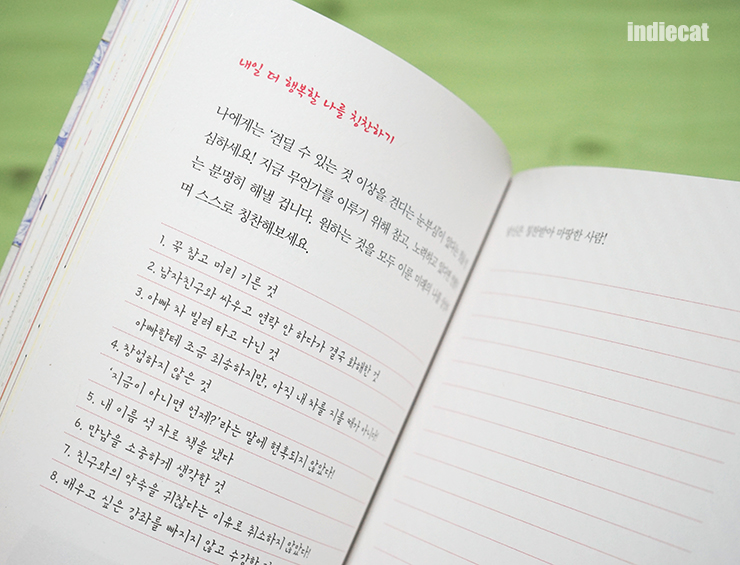 indiecat
내일 더 행복할 나를 칭찬하기
나에게는 '견딜 수 있는 것 이상을 견디는 눈부심이 있다'는
심하세요! 지금 무언가를 이루기 위해 참고, 노력하고 있다면
는 분명히 해낼 겁니다. 원하는 것을 모두 이룬 미래의 나를
며 스스로 칭찬해보세요.
1. 꾹 참고 머리 기른 것
2. 남자친구와 싸우고 연락 안 하다가 결국 화해한 것
3. 아빠 차 빌려 타고 다닌 것
아빠한테 조금 죄송하지만, 아직 내 차를 지를 때가 아니야!
4. 창업하지 않은 것
'지금이 아니면 언제?'라는 말에 현혹되지 않았다!
5. 내 이름 석 자로 책을 냈다
6. 만남을 소중하게 생각한 것
7. 친구와의 약속을 귀찮다는 이유로 취소하지 않았다!
8. 배우고 싶은 강좌를 빠지지 않고 수강한
당신은 칭찬받아 마땅한 사람!